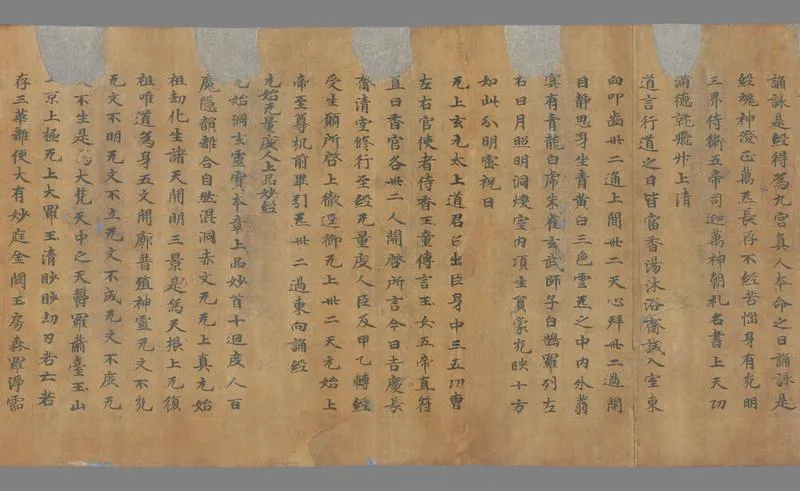 誦詠是經得為九宮真人本命之日誦詠是
經魄神澄正萬炁長存不經苦惱身有光明
三界侍衛五帝司迎萬神朝礼名書上天功
滿德就飛升上清
道言行道之日皆當香湯沐浴齋誡入室東
向叩齒卅二通上聞卅二天心拜卅二過閇
目靜思身坐青黃白三色雲炁之中內外蓊
冥有青龍白席朱雀玄武師子白鵠羅列左
右日月照明洞煥室內頂生負象光映十方
如此分明密祝曰
无上玄元太上道君召出臣身中三五功曹
左右官使者侍香玉童傳言玉女五帝直符
直日香官各卅二人開啓所言今日吉慶長
齋清室修行至經无量度人臣及甲乙轉經
受生願所啓上徹逕御无上卅二天元始上
帝至尊机前畢引炁卅二過東向誦經
元始无量度人上品妙經
元始洞玄靈寶本章上品妙首十迴度人百
魔隱韻離合自然混洞赤文无无上真元始
祖劫化生諸天開明三景是為天根上无復
祖唯道為身五文開廓普殖神靈无文不光
无文不明无文不立无文不成无文不度无
文不生是為大梵天中之天鬱羅蕭臺玉山
上京上極无上大羅玉清眇眇劫刃若亡若
存三華離便大有妙庭金闕玉房森羅淨